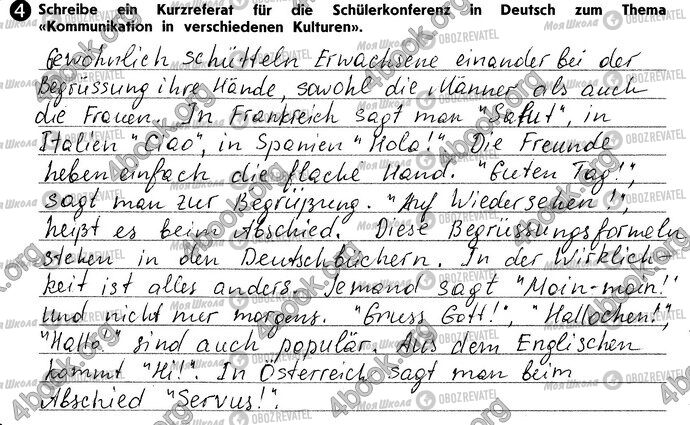 4 Schreibe ein Kurzreferat für die Schülerkonferenz in Deutsch zum Thema
«Kommunikation in verschiedenen Kulturen».
Gewöhnlich schütteln Erwachsene einander bei der
Begrüssung ihre Hände, sowohl die Männer als auch
die Frauen. In Frankreich sagt man "Salut", in
Italien "Ciao", in Spanien "Hola!". Die Freunde
heben einfach die flache Hand. "Guten Tag!",
sagt man zur Begrüßung. "Auf Wiedersehen!",
heißt es beim Abschied. Diese Begrüssungsformeln
stehen in den Deutschbüchern. In der Wirklich-
keit ist alles anders. Jemand sagt "Moin-moin!"
und nicht nur morgens. "Gruss Gott!", "Hallochen!",
"Hallo" sind auch populär. Aus dem Englischen
kommt "Hi!". In Österreich sagt man beim
Abschied "Servus!".